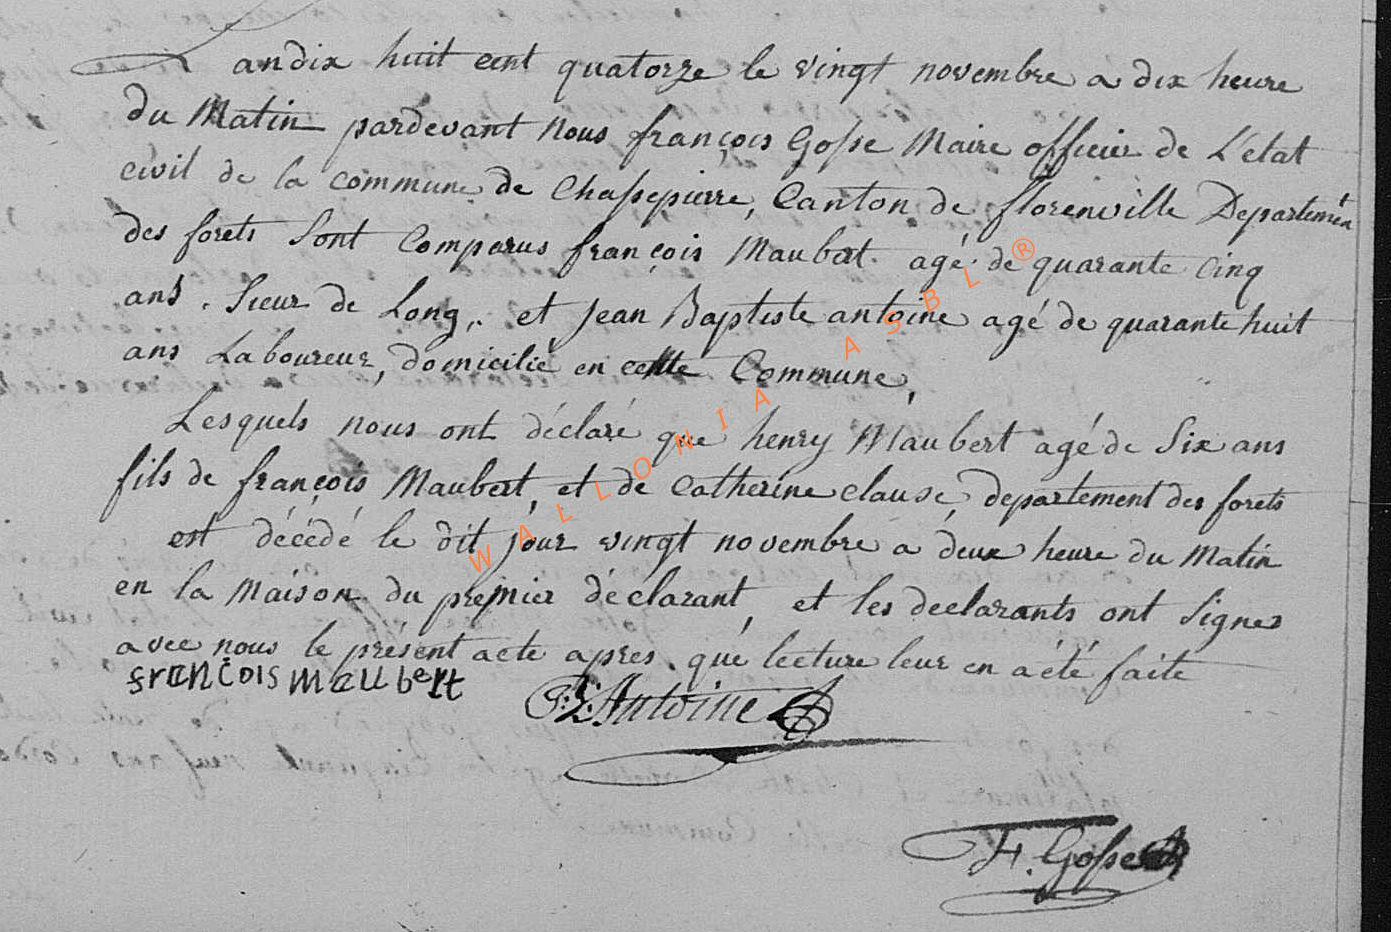 L andix huit cent quatorze le vingt novembre a dix heure
du Matin pardevant Nous françois Gosse Maire officier de L'état
civil de la commune de Chassepierre, Canton de florenville Departement
des forets Sont Comparus françois Maubert. agé de quarante cinq
ans. Sieur de Long,. et Jean Baptiste antoine agé de quarante huit
ans Laboureur, domicilié en cette Commune,
Lesquels nous ont déclaré que henry Maubert agé de Six ans
fils de françois Maubert, et de Catherine clause, departement des forets
est décédé le dit jour vingt novembre a deux heure du Matin
en la Maison du premier déclarant, et les declarants ont Signes
avec nous le présent acte apres. que lecture leur en a été faite
françois maubert
Antoine
F. Gosse
WALLONIA ASBL ®